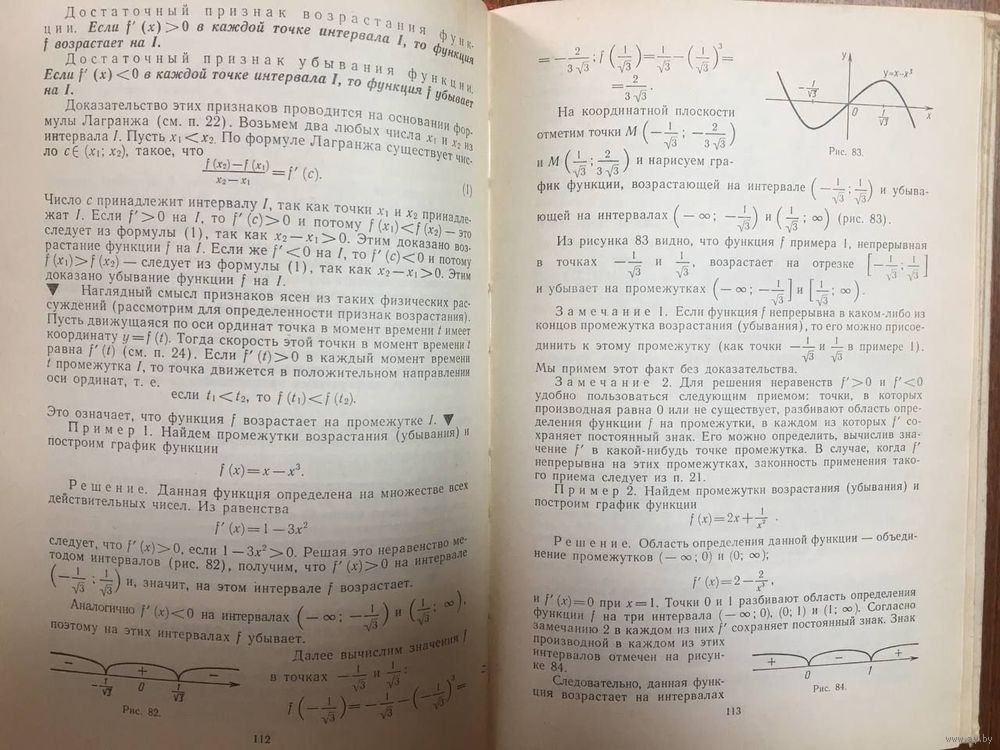 Достаточный признак возрастания функ-
ции. Если f′ (x) > 0 в каждой точке интервала I, то функция
f возрастает на I.
Достаточный признак убывания функции.
Если f′ (x) < 0 в каждой точке интервала I, то функция f убывает
на I.
Доказательство этих признаков проводится на основании фор-
мулы Лагранжа (см. п. 22). Возьмем два любых числа x₁ и x₂ из
интервала I. Пусть x₁ < x₂. По формуле Лагранжа существует чис-
ло c ∈ (x₁; x₂), такое, что
(f (x₂) − f (x₁))/(x₂ − x₁) = f′ (c). (1)
Число c принадлежит интервалу I, так как точки x₁ и x₂ принадле-
жат I. Если f′ > 0 на I, то f′ (c) > 0 и потому f (x₁) < f (x₂) — это
следует из формулы (1), так как x₂ − x₁ > 0. Этим доказано воз-
растание функции f на I. Если же f′ < 0 на I, то f′ (c) < 0 и потому
f (x₁) > f (x₂) — следует из формулы (1), так как x₂ − x₁ > 0. Этим
доказано убывание функции f на I.
▼ Наглядный смысл признаков ясен из таких физических рас-
суждений (рассмотрим для определенности признак возрастания).
Пусть движущаяся по оси ординат точка в момент времени t имеет
координату y = f (t). Тогда скорость этой точки в момент времени t
равна f′ (t) (см. п. 24). Если f′ (t) > 0 в каждый момент времени
t промежутка I, то точка движется в положительном направлении
оси ординат, т. е.
если t₁ < t₂, то f (t₁) < f (t₂).
Это означает, что функция f возрастает на промежутке I. ▼
Пример 1. Найдем промежутки возрастания (убывания) и
построим график функции
f (x) = x − x³.
Решение. Данная функция определена на множестве всех
действительных чисел. Из равенства
f′ (x) = 1 − 3x²
следует, что f′ (x) > 0, если 1 − 3x² > 0. Решая это неравенство ме-
тодом интервалов (рис. 82), получим, что f′ (x) > 0 на интервале
(−1/√3; 1/√3) и, значит, на этом интервале f возрастает.
Аналогично f′ (x) < 0 на интервалах (−∞; −1/√3) и (1/√3; ∞),
поэтому на этих интервалах f убывает.
− + −
−1/√3 0 1/√3
Рис. 82.
Далее вычислим значения f
в точках −1/√3 и 1/√3:
f (−1/√3) = −1/√3 − (−1/√3)³ =
112
= −2/(3√3); f (1/√3) = 1/√3 − (1/√3)³ =
= 2/(3√3).
y
y=x−x³
−1/√3
0
1/√3
x
Рис. 83.
На координатной плоскости
отметим точки M (−1/√3; −2/(3√3))
и M (1/√3; 2/(3√3)) и нарисуем гра-
фик функции, возрастающей на интервале (−1/√3; 1/√3) и убыва-
ющей на интервалах (−∞; −1/√3) и (1/√3; ∞) (рис. 83).
Из рисунка 83 видно, что функция f примера 1, непрерывная
в точках −1/√3 и 1/√3, возрастает на отрезке [−1/√3; 1/√3]
и убывает на промежутках (−∞; −1/√3] и [1/√3; ∞).
Замечание 1. Если функция f непрерывна в каком-либо из
концов промежутка возрастания (убывания), то его можно присое-
динить к этому промежутку (как точки −1/√3 и 1/√3 в примере 1).
Мы примем этот факт без доказательства.
Замечание 2. Для решения неравенств f′ > 0 и f′ < 0
удобно пользоваться следующим приемом: точки, в которых
производная равна 0 или не существует, разбивают область опре-
деления функции f на промежутки, в каждом из которых f′ со-
храняет постоянный знак. Его можно определить, вычислив зна-
чение f′ в какой-нибудь точке промежутка. В случае, когда f′
непрерывна на этих промежутках, законность применения тако-
го приема следует из п. 21.
Пример 2. Найдем промежутки возрастания (убывания) и
построим график функции
f (x) = 2x + 1/x².
Решение. Область определения данной функции — объеди-
нение промежутков (−∞; 0) и (0; ∞);
f′ (x) = 2 − 2/x³,
и f′ (x) = 0 при x = 1. Точки 0 и 1 разбивают область определения
функции f на три интервала (−∞; 0), (0; 1) и (1; ∞). Согласно
замечанию 2 в каждом из них f′ сохраняет постоянный знак. Знак
производной в каждом из этих
интервалов отмечен на рисун-
ке 84.
Следовательно, данная функ-
ция возрастает на интервалах
+ − +
0 1
Рис. 84.
113